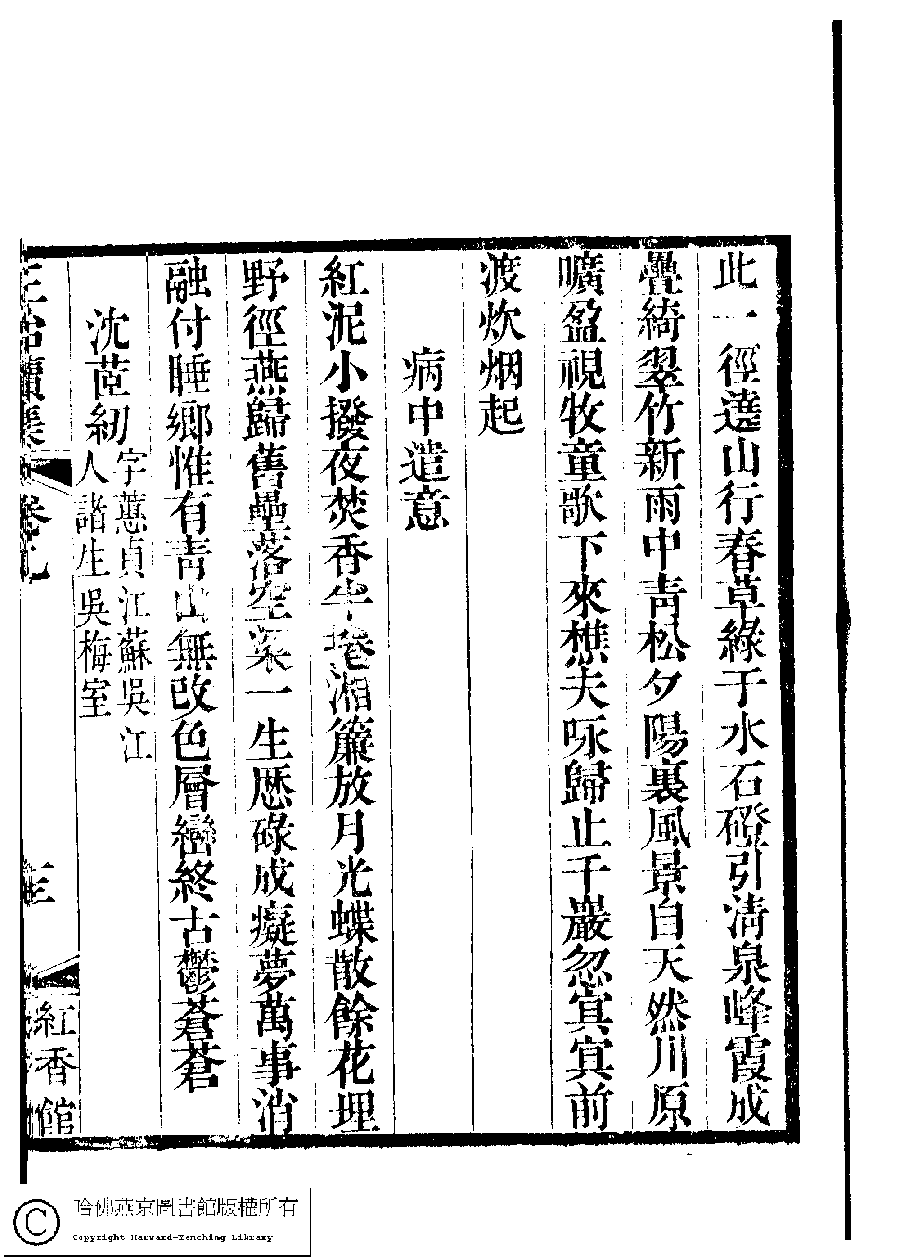 此一徑遶山行春草綠于水石磴引清泉峰霞成
疊綺翠竹新雨中青松夕陽裏風景自天然川原
曠盈視牧童歌下來樵夫咏歸止千巖忽寘寘前
渡炊烟起
病中遣意
紅泥小撥夜焚香半捲湘簾放月光蝶散餘花埋
野徑燕歸舊壘落空梁一生歷碌成癡夢萬事消
融付睡鄉惟有青山無改色層巒終古鬱蒼蒼
沈茝紉
字蕙貞江蘇吳江
人諸生吳梅室
正始續集
卷九
三
紅香館
哈佛燕京圖書館版權所有
Copyright Harvard-Yenching Library